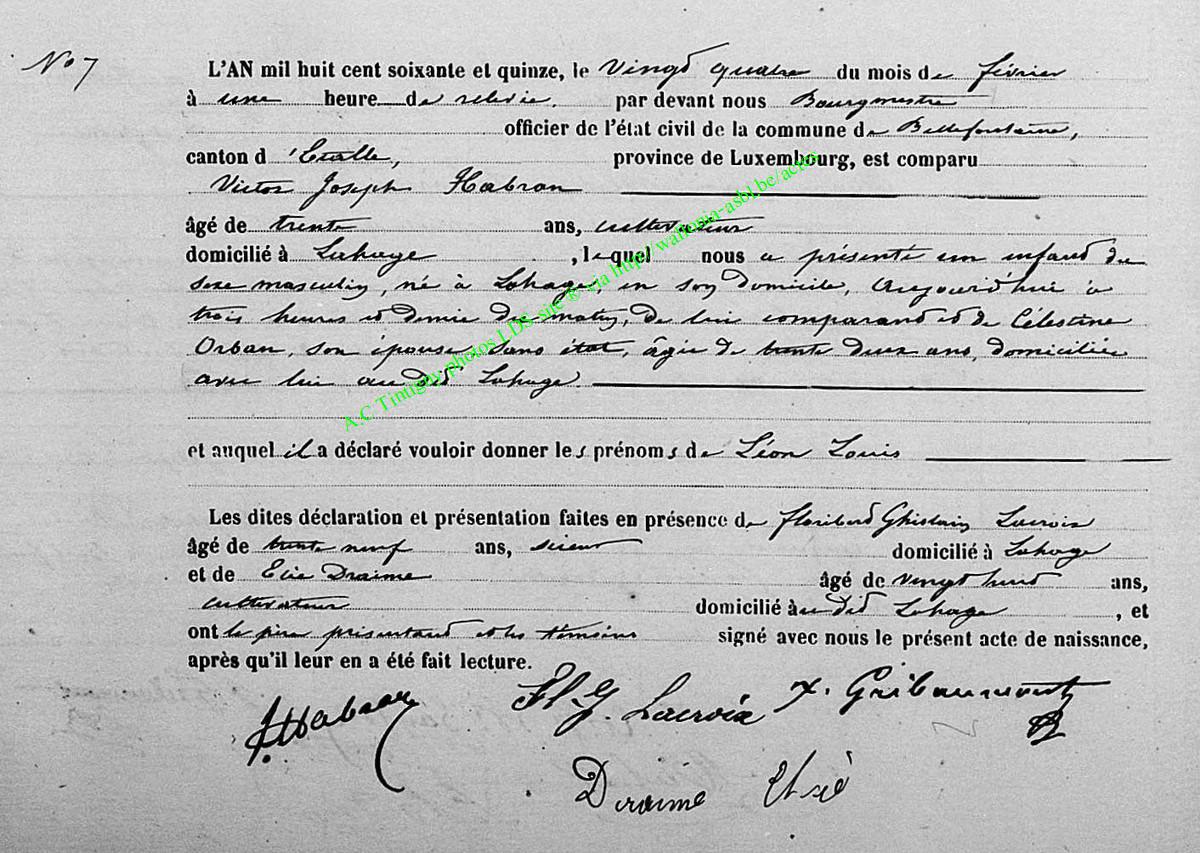 No 7
L'AN mil huit cent soixante et quinze, le vingt quatre du mois de février
à une heure de relevée. par devant nous Bourgmestre
officier de l'état civil de la commune de Bellefontaine,
canton d'Etalle, province de Luxembourg, est comparu
Victor Joseph Habran
âgé de trente ans, cultivateur
domicilié à Lahage, lequel nous a présenté un enfant du
sexe masculin, né à Lahage, en son domicile, aujourd'hui à
trois heures et demie du matin, de lui comparant et de Célestine
Orban, son épouse, sans état, âgée de trente deux ans, domiciliée
avec lui au dit Lahage.
et auquel il a déclaré vouloir donner les prénoms de Léon Louis
Les dites déclaration et présentation faites en présence de Floribert Ghislain Lacroix
âgé de trente neuf ans, scieur domicilié à Lahage
et de Elie Draime âgé de vingt huit ans,
cultivateur domicilié au dit Lahage, et
ont le père présentant et les témoins signé avec nous le présent acte de naissance,
après qu'il leur en a été fait lecture.
Habran Fl-G. Lacroix Gribaumont
Draime
A.C Tintigny photos LDS site © via http://wallonia-asbl.be/actes